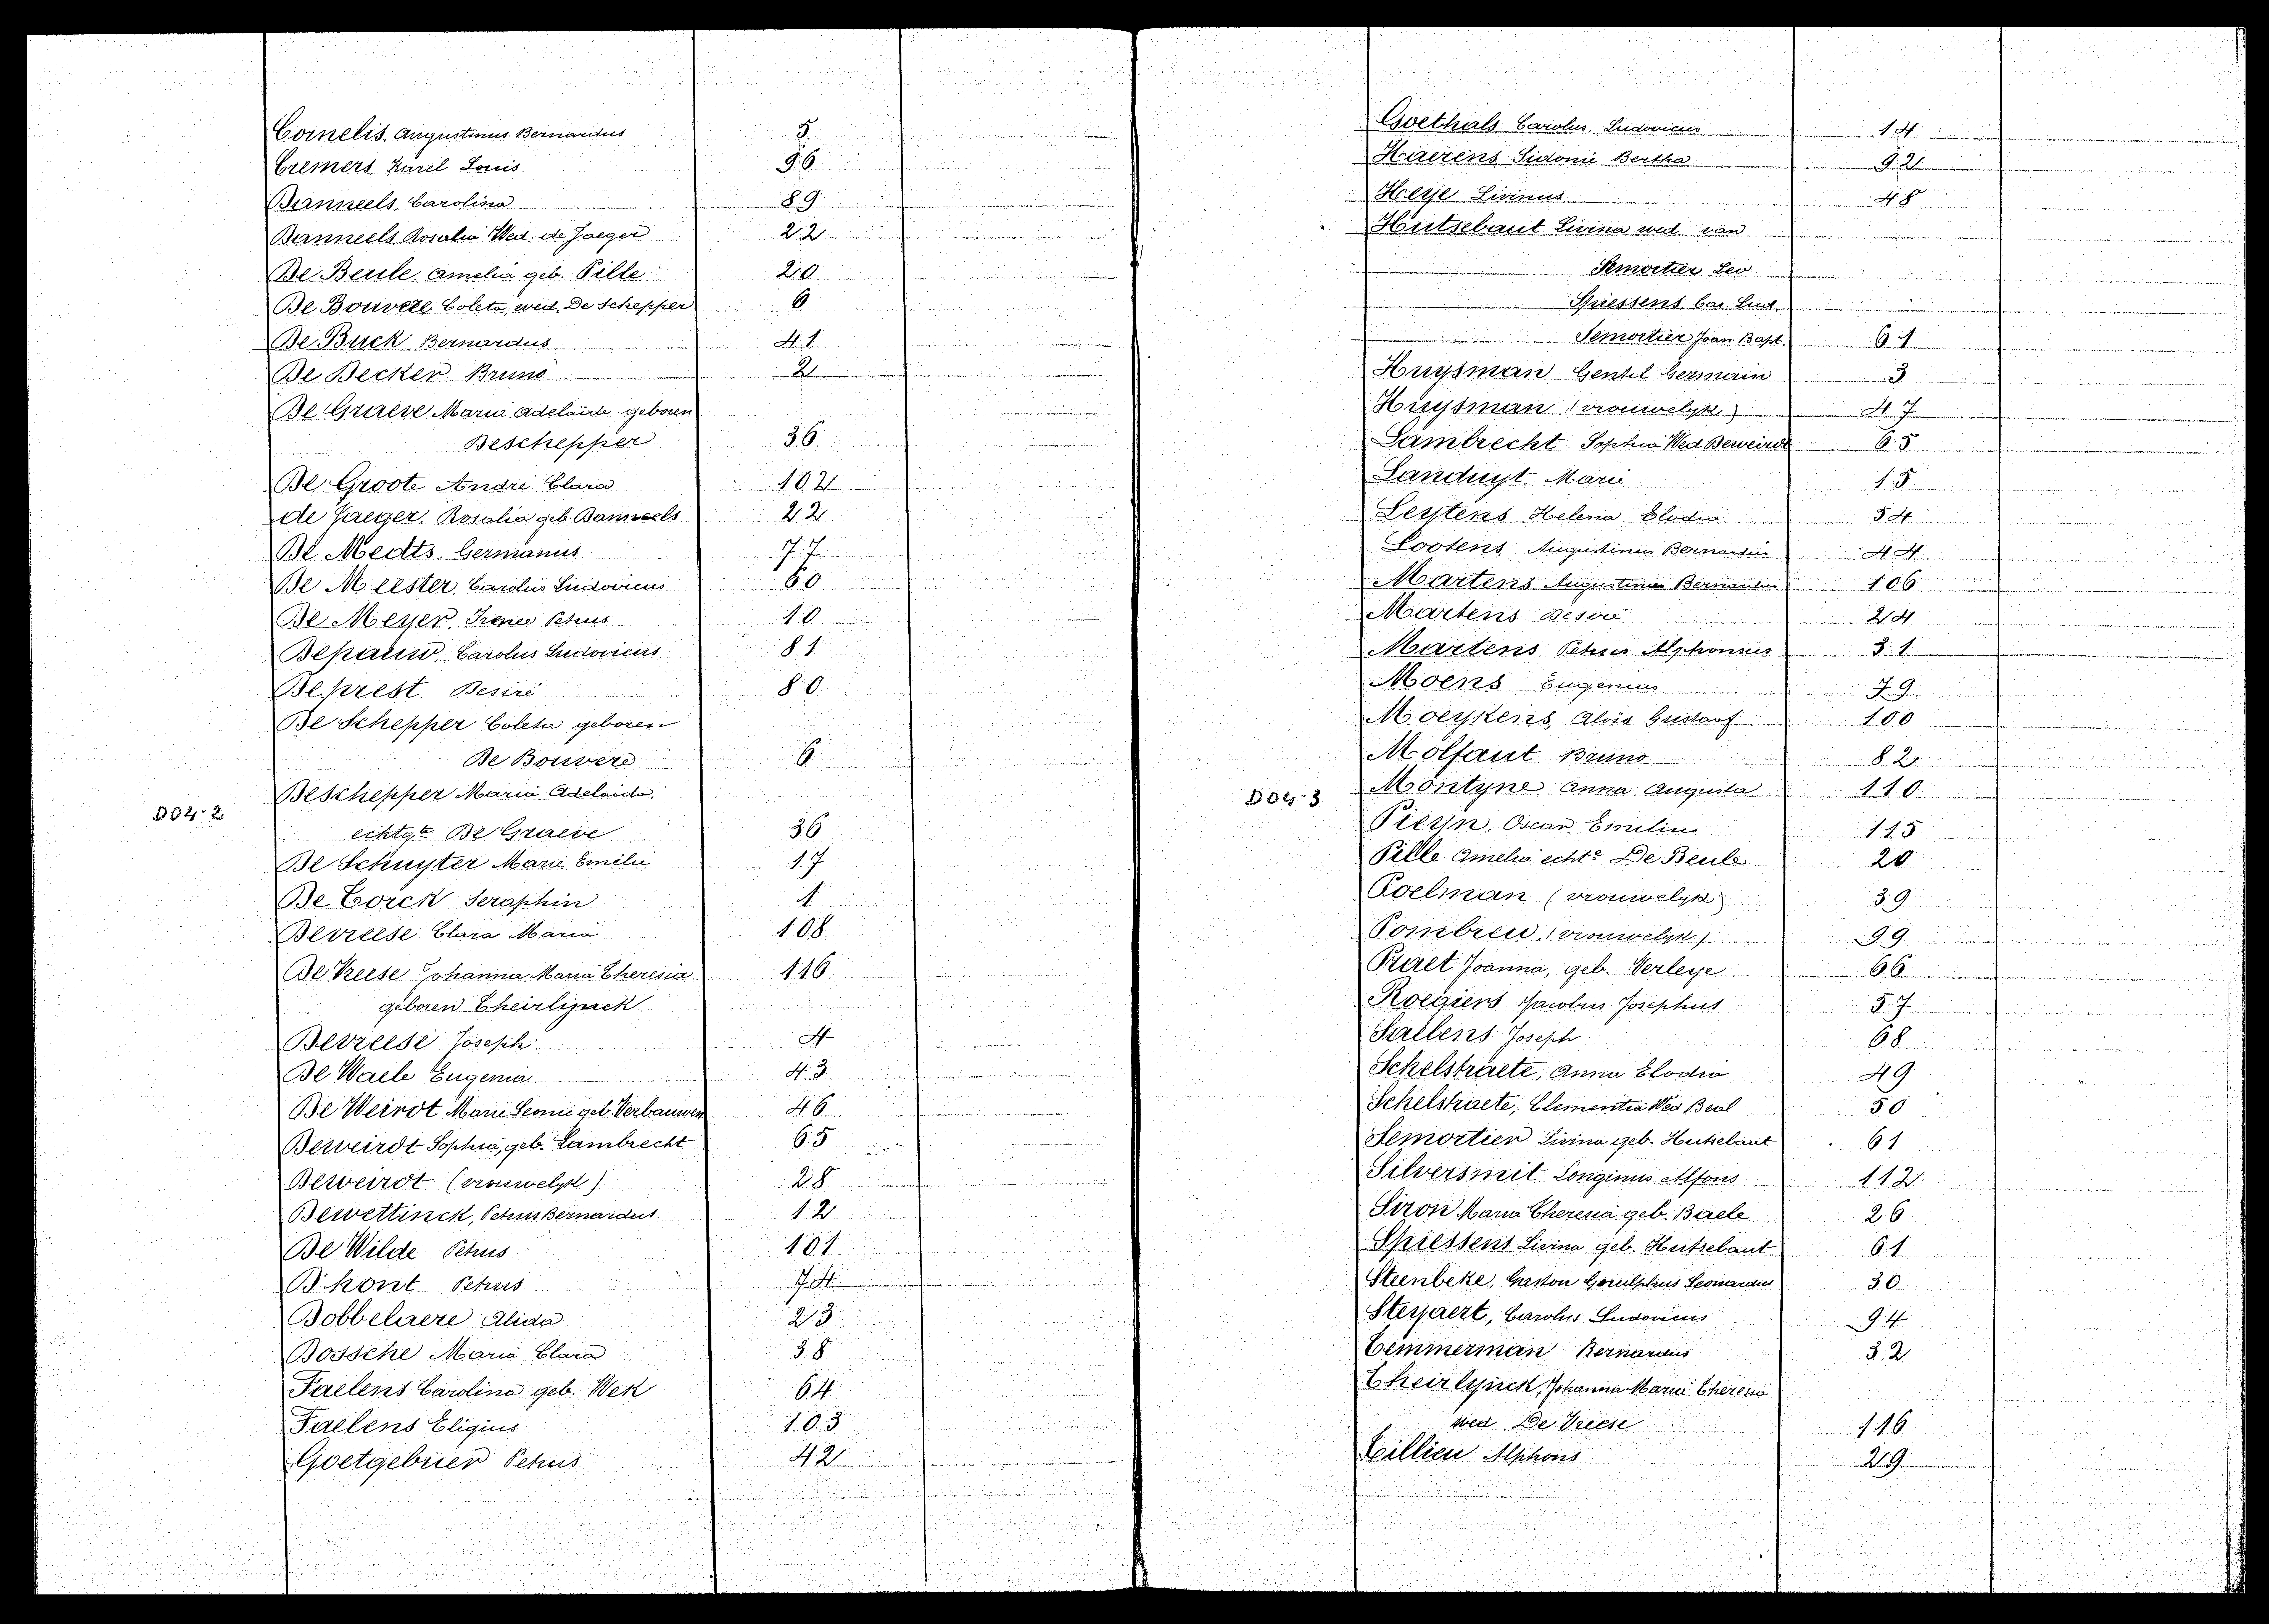 Cornelis. Augustinus Bernardus 5.
Cremers, Karel Louis 96
Danneels, Carolina 89
Danneels Rosalia Wed. de Jaeger 22
De Beule, Amelia geb. Pille 20
De Bouvere Coleta, wed. De Schepper 6
De Buck Bernardus 41
De Decker Bruno 2
De Graeve Marie Adelaïde geboren
Deschepper 36
De Groote André Clara 102
de Jaeger, Rosalia geb. Danneels 22
De Medts, Germanus 77
De Meester, Carolus Ludovicus 60
De Meyer, Irenee Petrus 10
Depauw, Carolus Ludovicus 81
Deprest. Desiré 80
De Schepper Coleta geboren
De Bouvere 6
Deschepper Maria Adelaida,
D04-2
echtgte De Graeve 36
De Schuyter Marie Emilie 17
De Torck Seraphin 1
Devreese Clara Maria 108
De Vreese Johanna Maria Theresia 116
geboren Theirlijnck
Devreese Joseph 4
De Waele Eugenia 43
De Weirdt Marie Leonie geb. Verbauwen 46
Deweirdt Sophia, geb. Lambrecht 65
Deweirdt (vrouwelyk) 28
Dewettinck, Petrus Bernardus 12
De Wilde Petrus 101
D'hont Petrus 74
Dobbelaere Alida 23
Dossche Maria Clara 38
Faelens Carolina geb. Wek 64
Faelens Eligius 103
Goetgebuer Petrus 42
Goethals Carolus, Ludovicus 14
Haerens Sidonie Bertha 92
Heye Livinus 48
Hutsebaut Livina wed. van
Semortier Leo
Spiessens Car. Lud.
Semortier Joan Bapt. 61
Huysman Gentil Germain 3
Huysman (vrouwelyk) 47
Lambrecht Sophia Wed Deweirdt 65
Landuyt Marie 15
Leytens Helena Elodia 54
Lootens Augustinus Bernardus 44
Martens Augustinus Bernardus 106
Martens Desiré 24
Martens Petrus Alphonsus 31
Moens Eugenius 79
Moeykens, Aloïs Gustaaf 100
Molfaut Bruno 82
D04-3
Montyne Anna Augusta 110
Pieyn, Oscar Emilius 115
Pille Amelia echte De Beule 20
Poelman (vrouwelyk) 39
Pombreu, (vrouwelyk) 99
Praet Joanna, geb. Verleye 66
Roegiers Jacobus Josephus 57
Saelens Joseph 68
Schelstraete, Anna Elodia 49
Schelstraete, Clementia Wed Bral 50
Semortier Livina geb. Hutsebaut 61
Silversmit Longinus Alfons 112
Siron Maria Theresia geb. Baele 26
Spiessens Livina geb. Hutsebaut 61
Steenbeke, Gaston Leonardus 30
Steyaert, Carolus Ludovicus 94
Temmerman Bernardus 32
Theirlynck, Johanna Maria Theresia
wed De Vreese 116
Tillieu Alphons 29